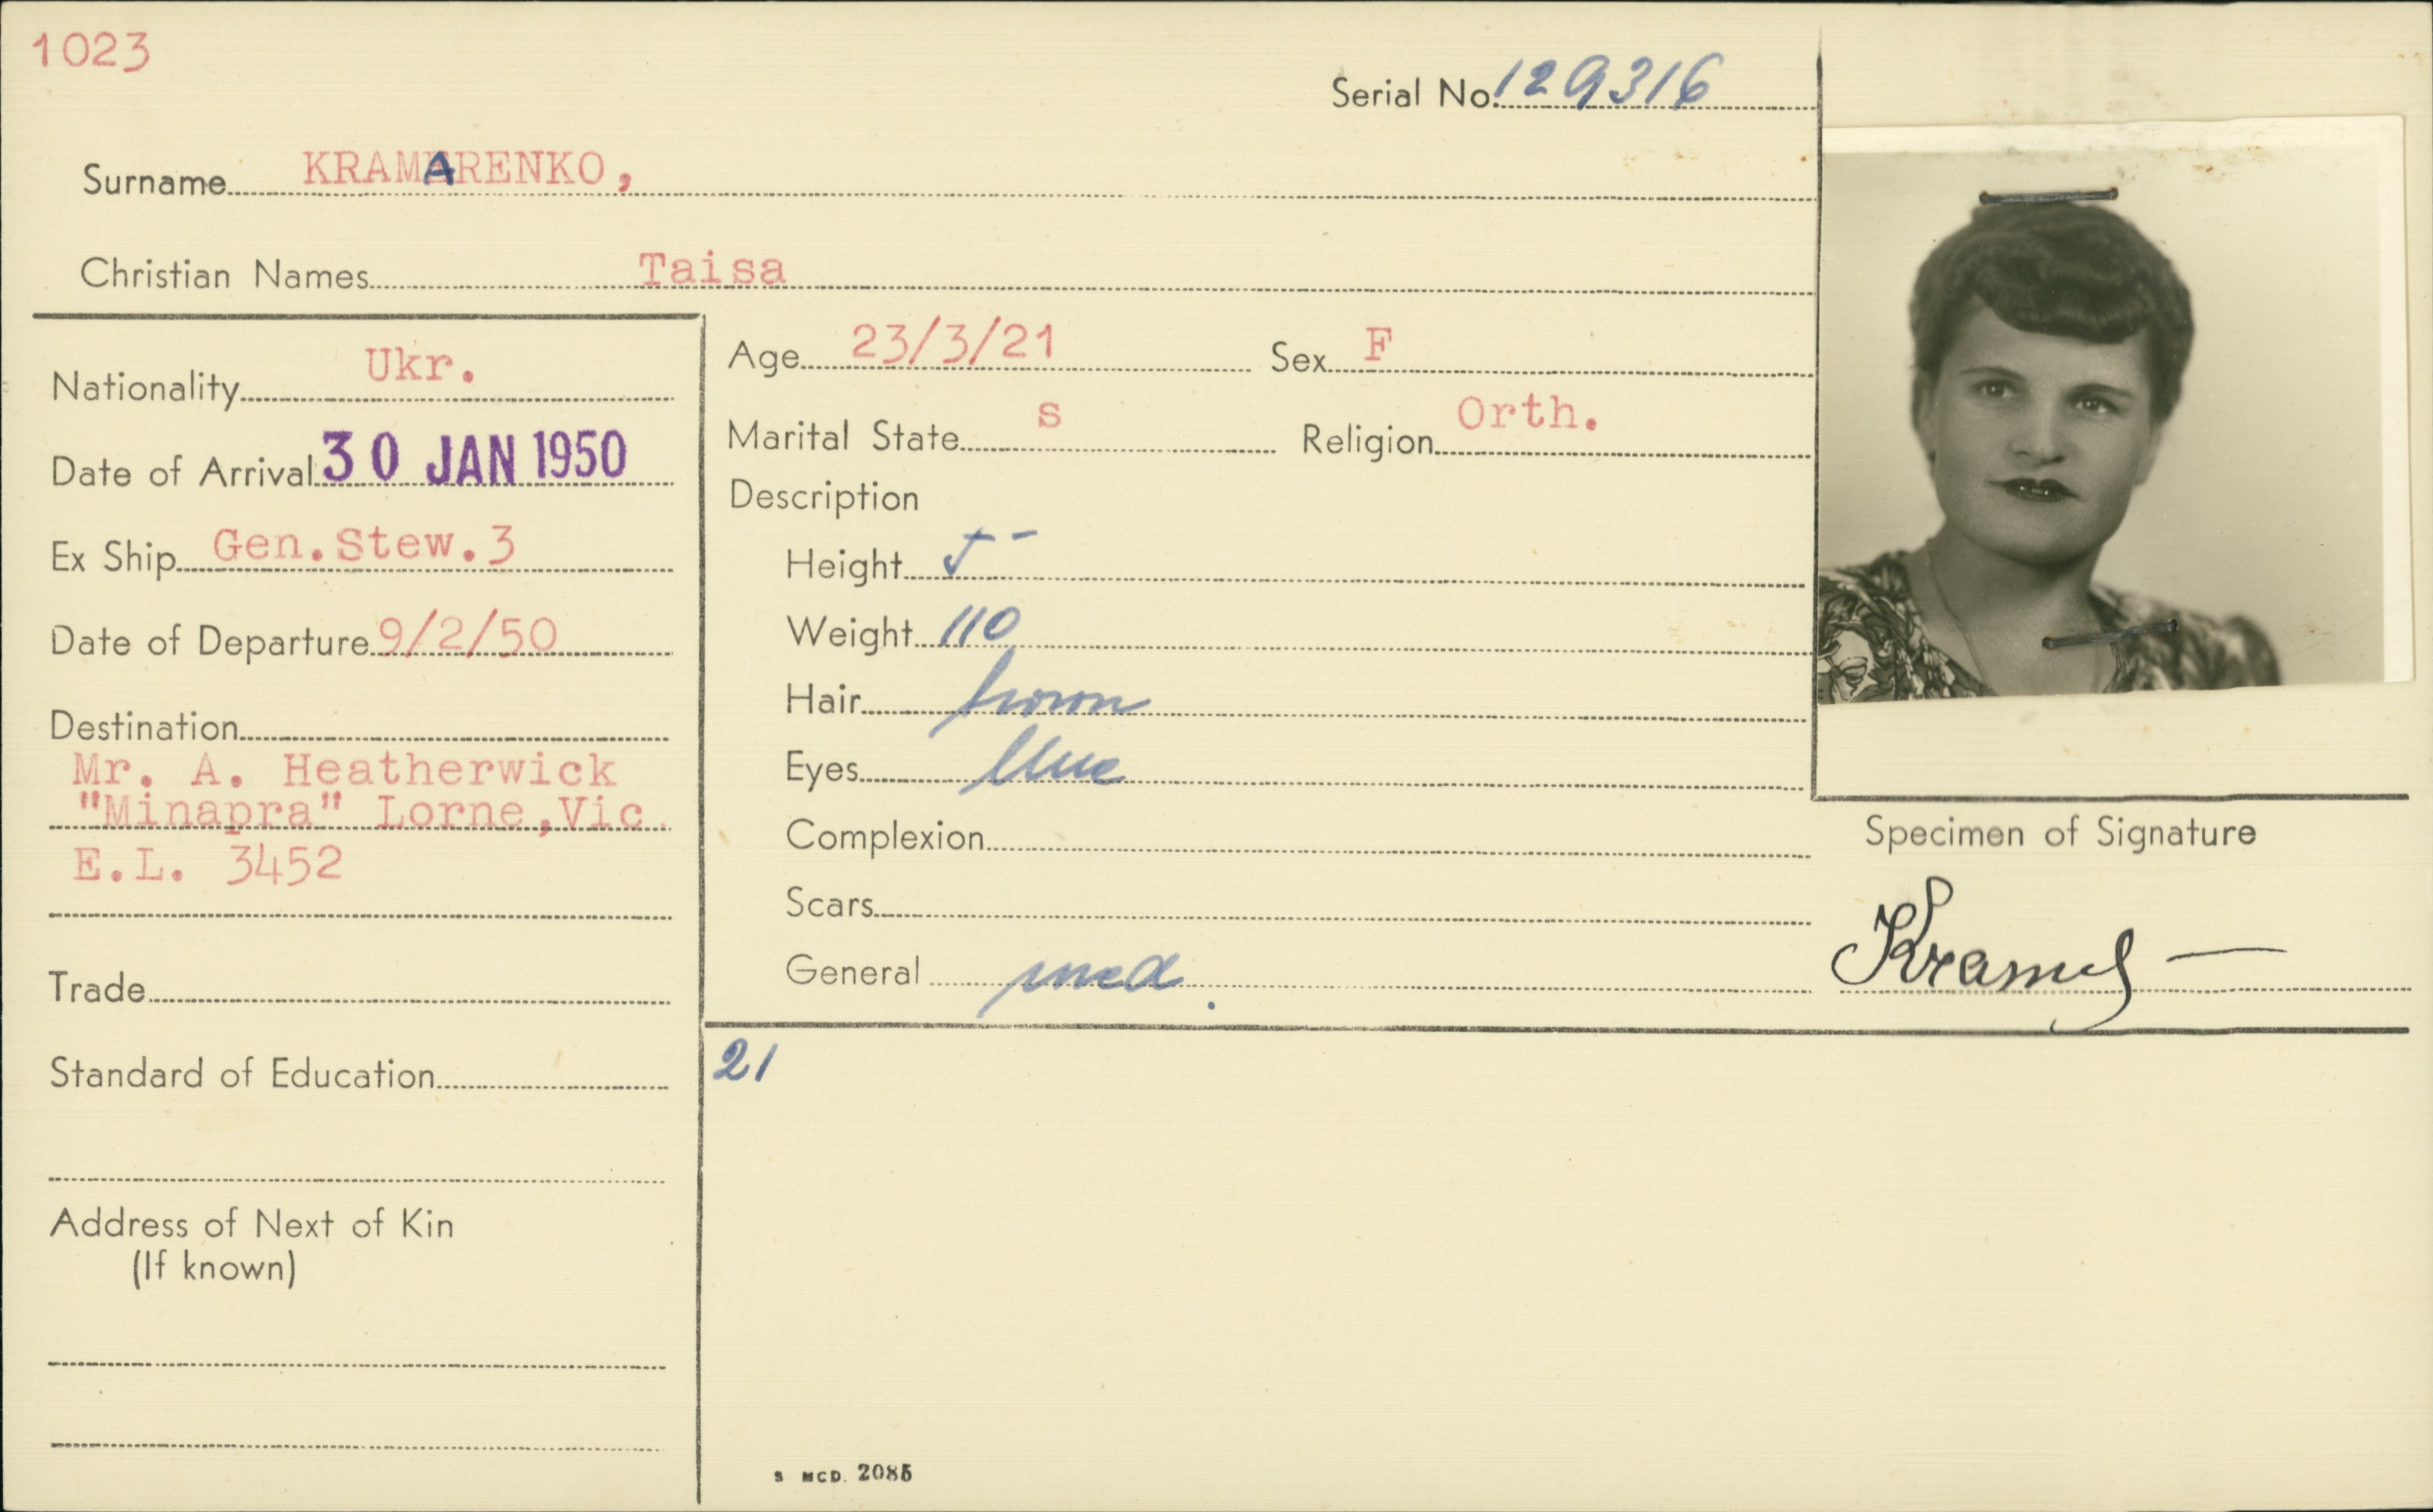 1023
Serial No. 129316
Surname KRAMARENKO,
Christian Names Taisa
Nationality Ukr.
Date of Arrival 30 JAN 1950
Ex Ship Gen.Stew.3
Date of Departure 9/2/50
Destination
Mr. A. Heatherwick
"Minapra" Lorne,Vic.
E.L. 3452
Trade
Standard of Education
Address of Next of Kin
(If known)
Age 23/3/21 Sex F
Marital State s Religion Orth.
Description
Height 5 -
Weight 110
Hair brown
Eyes blue
Complexion
Scars
General med.
Specimen of Signature
21
S MCD. 2085